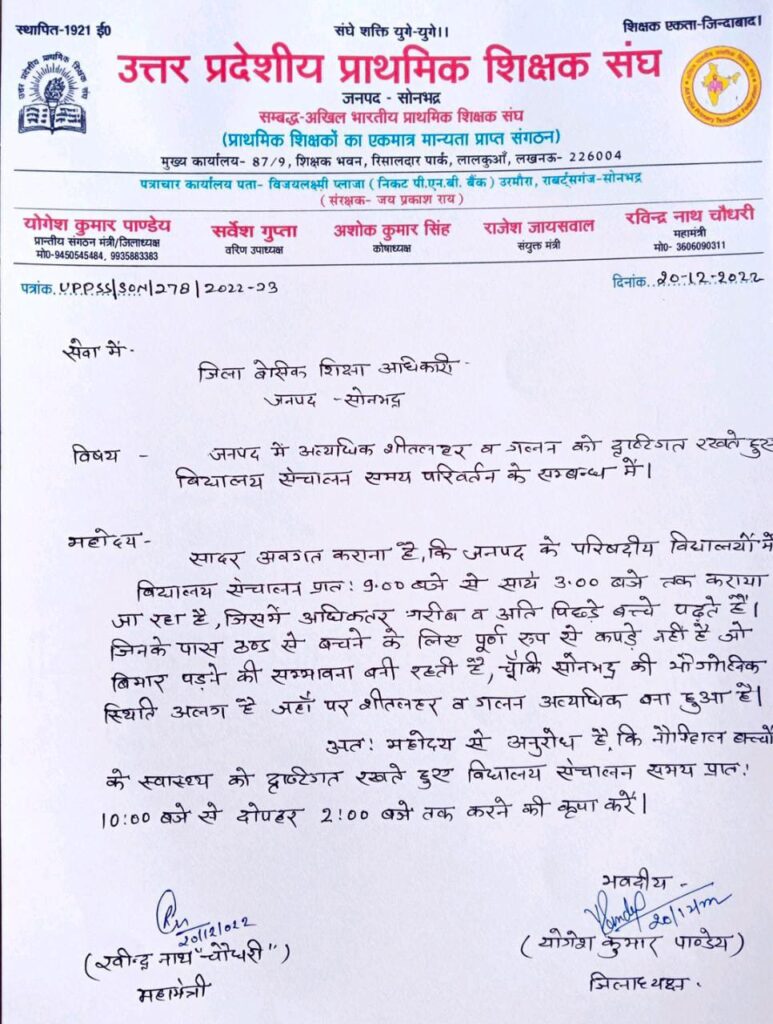 स्थापित-1921 ई0
संघे शक्ति युगे-युगे।।
शिक्षक एकता-जिन्दाबाद।
उत्तर प्रदेशीय प्राथमिक शिक्षक संघ
जनपद - सोनभद्र
सम्बद्ध-अखिल भारतीय प्राथमिक शिक्षक संघ
(प्राथमिक शिक्षकों का एकमात्र मान्यता प्राप्त संगठन)
मुख्य कार्यालय- 87/9, शिक्षक भवन, रिसालदार पार्क, लालकुआँ, लखनऊ- 226004
पत्राचार कार्यालय पता- विजयलक्ष्मी प्लाजा ( निकट पी.एन.बी. बैंक ) उरमौरा, राबर्ट्सगंज-सोनभद्र
( संरक्षक- जय प्रकाश राय )
योगेश कुमार पाण्डेय
प्रान्तीय संगठन मंत्री/जिलाध्यक्ष
मो0-9450545484, 9935883383
सर्वेश गुप्ता
वरिण उपाध्यक्ष
अशोक कुमार सिंह
कोषाध्यक्ष
राजेश जायसवाल
संयुक्त मंत्री
रविन्द्र नाथ चौधरी
महामंत्री
मो0- 3606090311
पत्रांक. UPPSS/SON/278/2022-23
दिनांक. 20-12-2022
सेवा में -
जिला बेसिक शिक्षा अधिकारी -
जनपद - सोनभद्र
विषय - जनपद में अत्यधिक शीतलहर व गलन को दृष्टिगत रखते हुए
विद्यालय संचालन समय परिवर्तन के सम्बन्ध में।
महोदय -
सादर अवगत कराना है, कि जनपद के परिषदीय विद्यालयों में
विद्यालय संचालन प्रात: 9:00 बजे से सायं 3:00 बजे तक कराया
जा रहा है, जिसमें अधिकतर गरीब व अति पिछड़े बच्चे पढ़ते हैं।
जिनके पास ठण्ड से बचने के लिए पूर्ण रुप से कपड़े नहीं है जो
बिमार पड़ने की सम्भावना बनी रहती है, चूँकि सोनभद्र की भौगोलिक
स्थिति अलग है जहाँ पर शीतलहर व गलन अत्यधिक बना हुआ है।
अत: महोदय से अनुरोध है, कि नौनिहाल बच्चों
के स्वास्थ्य को दृष्टिगत रखते हुए विद्यालय संचालन समय प्रात:
10:00 बजे से दोपहर 2:00 बजे तक करने की कृपा करें।
भवदीय -
20/12/2022
(रवीन्द्र नाथ "चौधरी")
महामंत्री
(योगेश कुमार पाण्डेय)
जिलाध्यक्ष.